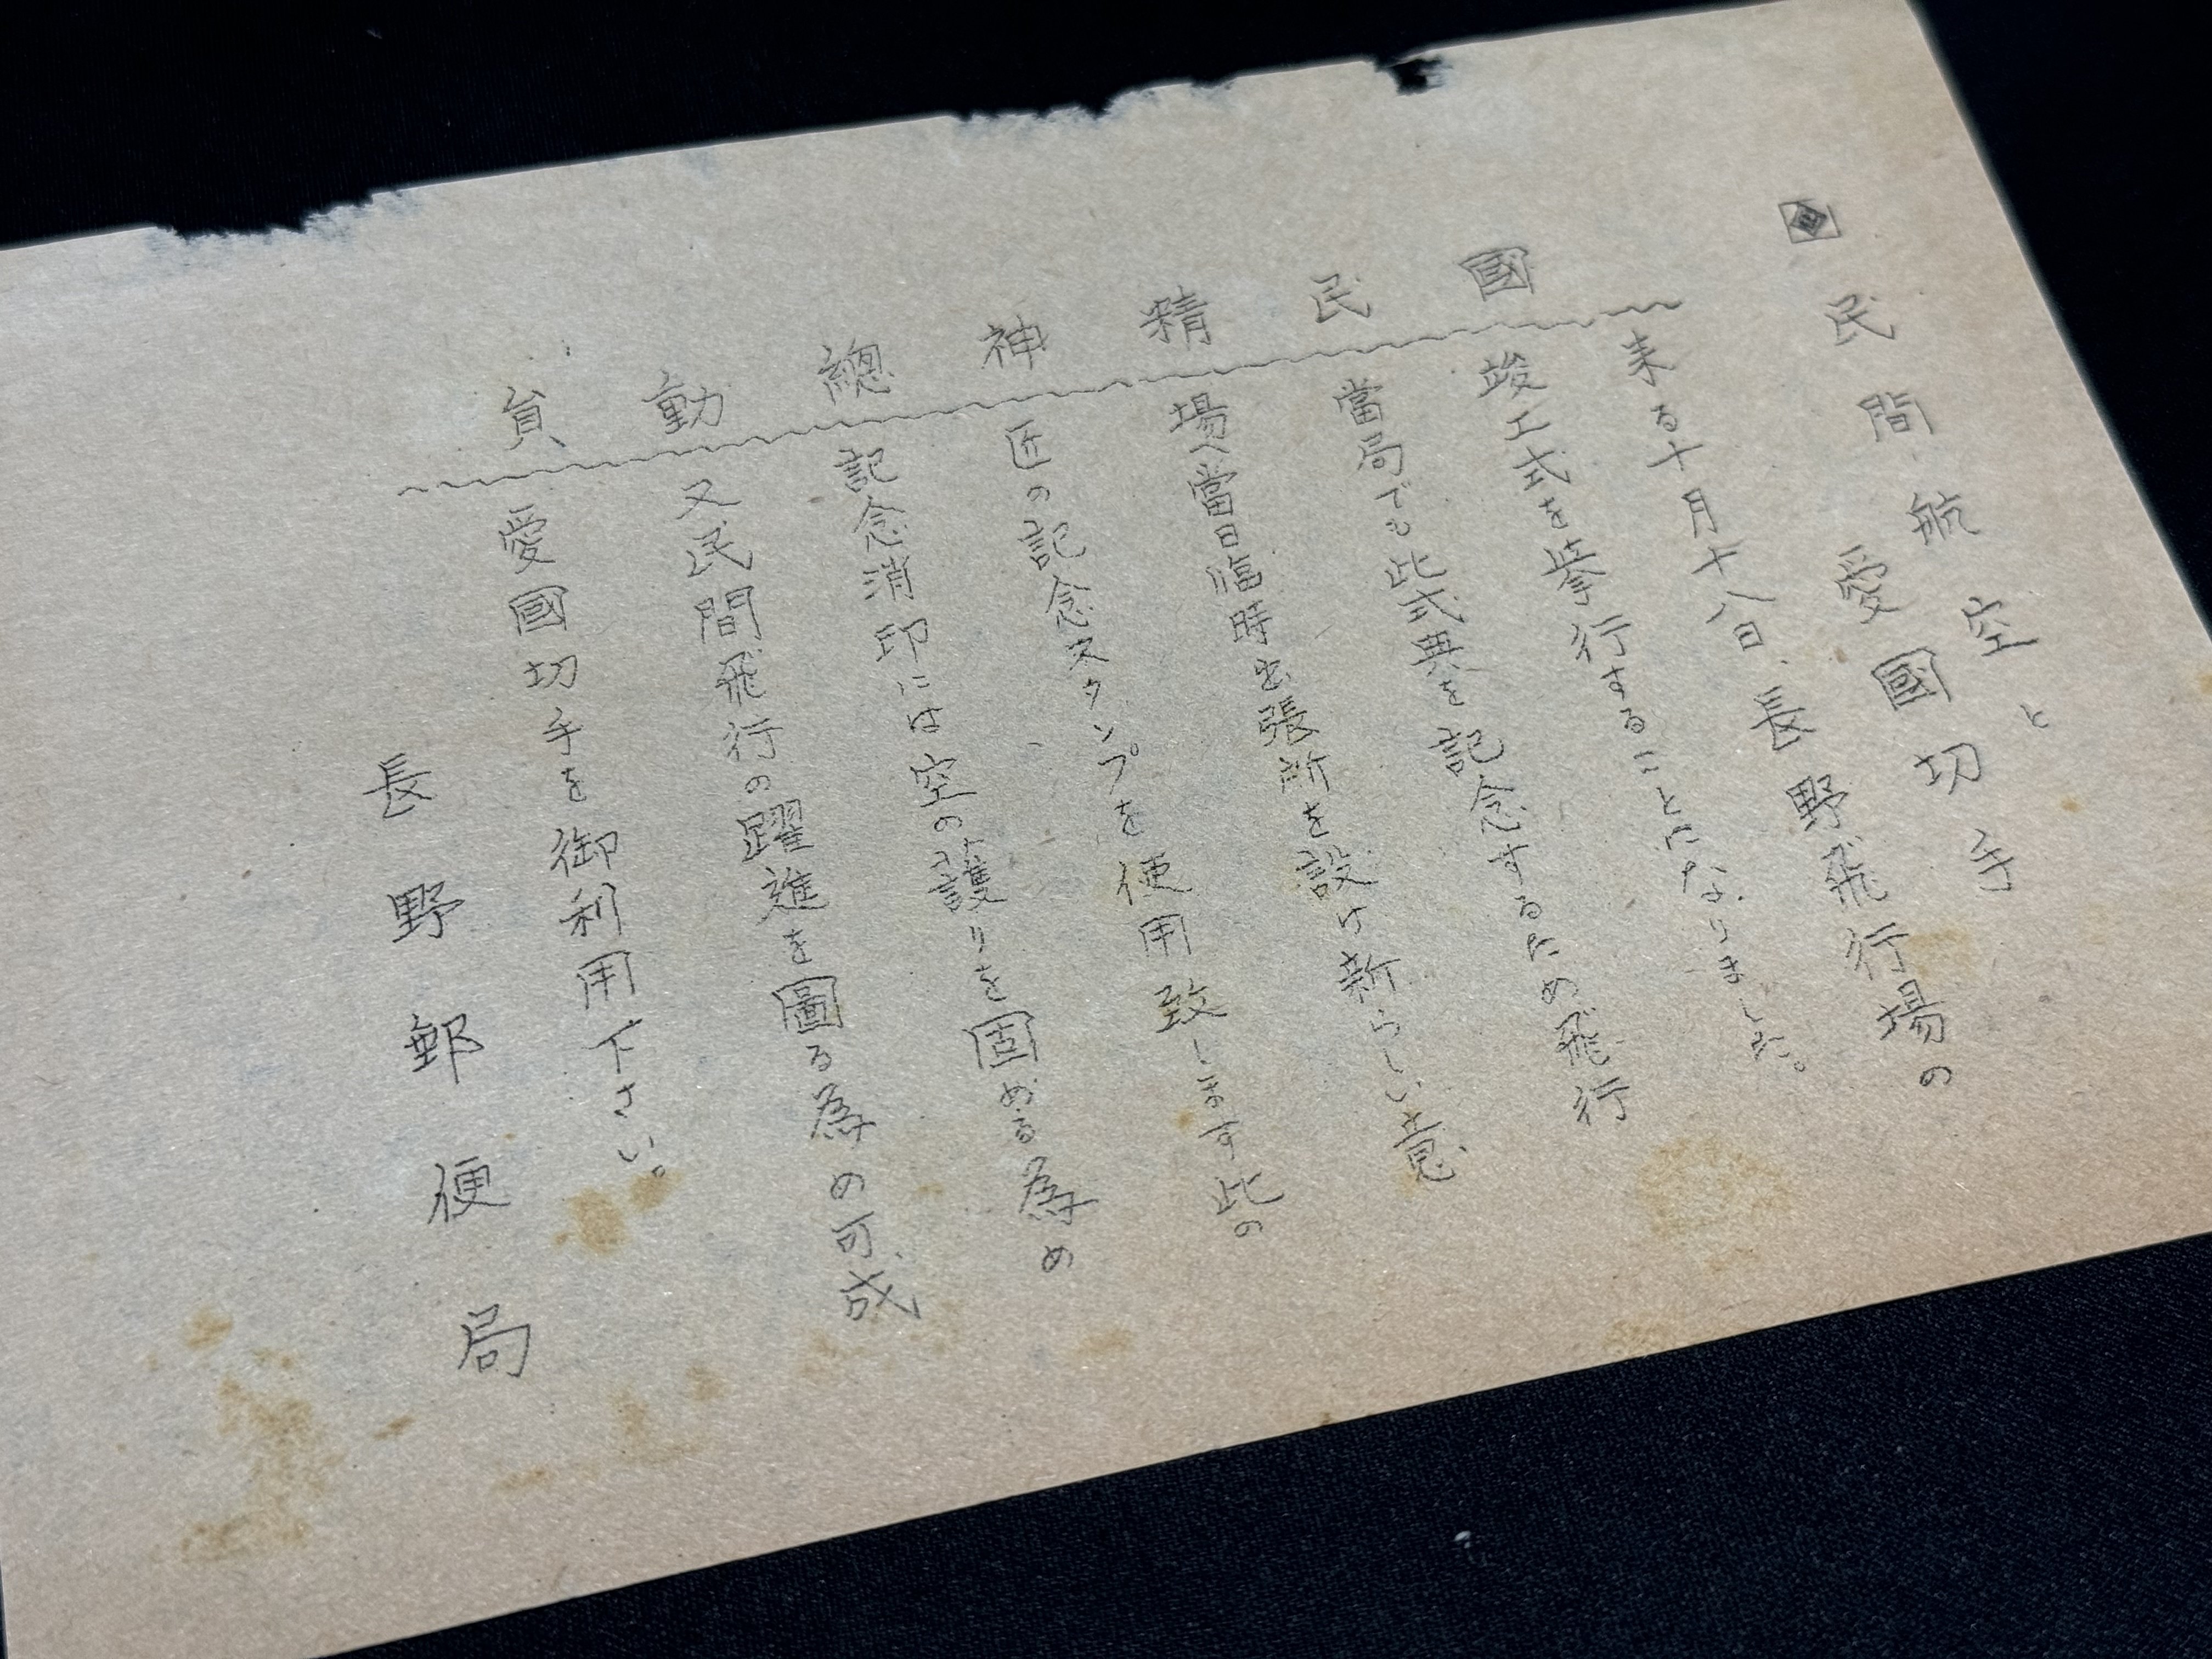 民間航空と
愛國切手
國民精神總動員
来る十月十八日、長野飛行場の
竣工式を挙行することになりました。
當局でも此式典を記念するため飛行
場へ當日臨時出張所を設け新らしい意
匠の記念スタンプを使用致します此の
記念消印には空の護りを固める為め
又民間飛行の躍進を圖る為の可成
愛國切手を御利用下さい。
長野郵便局